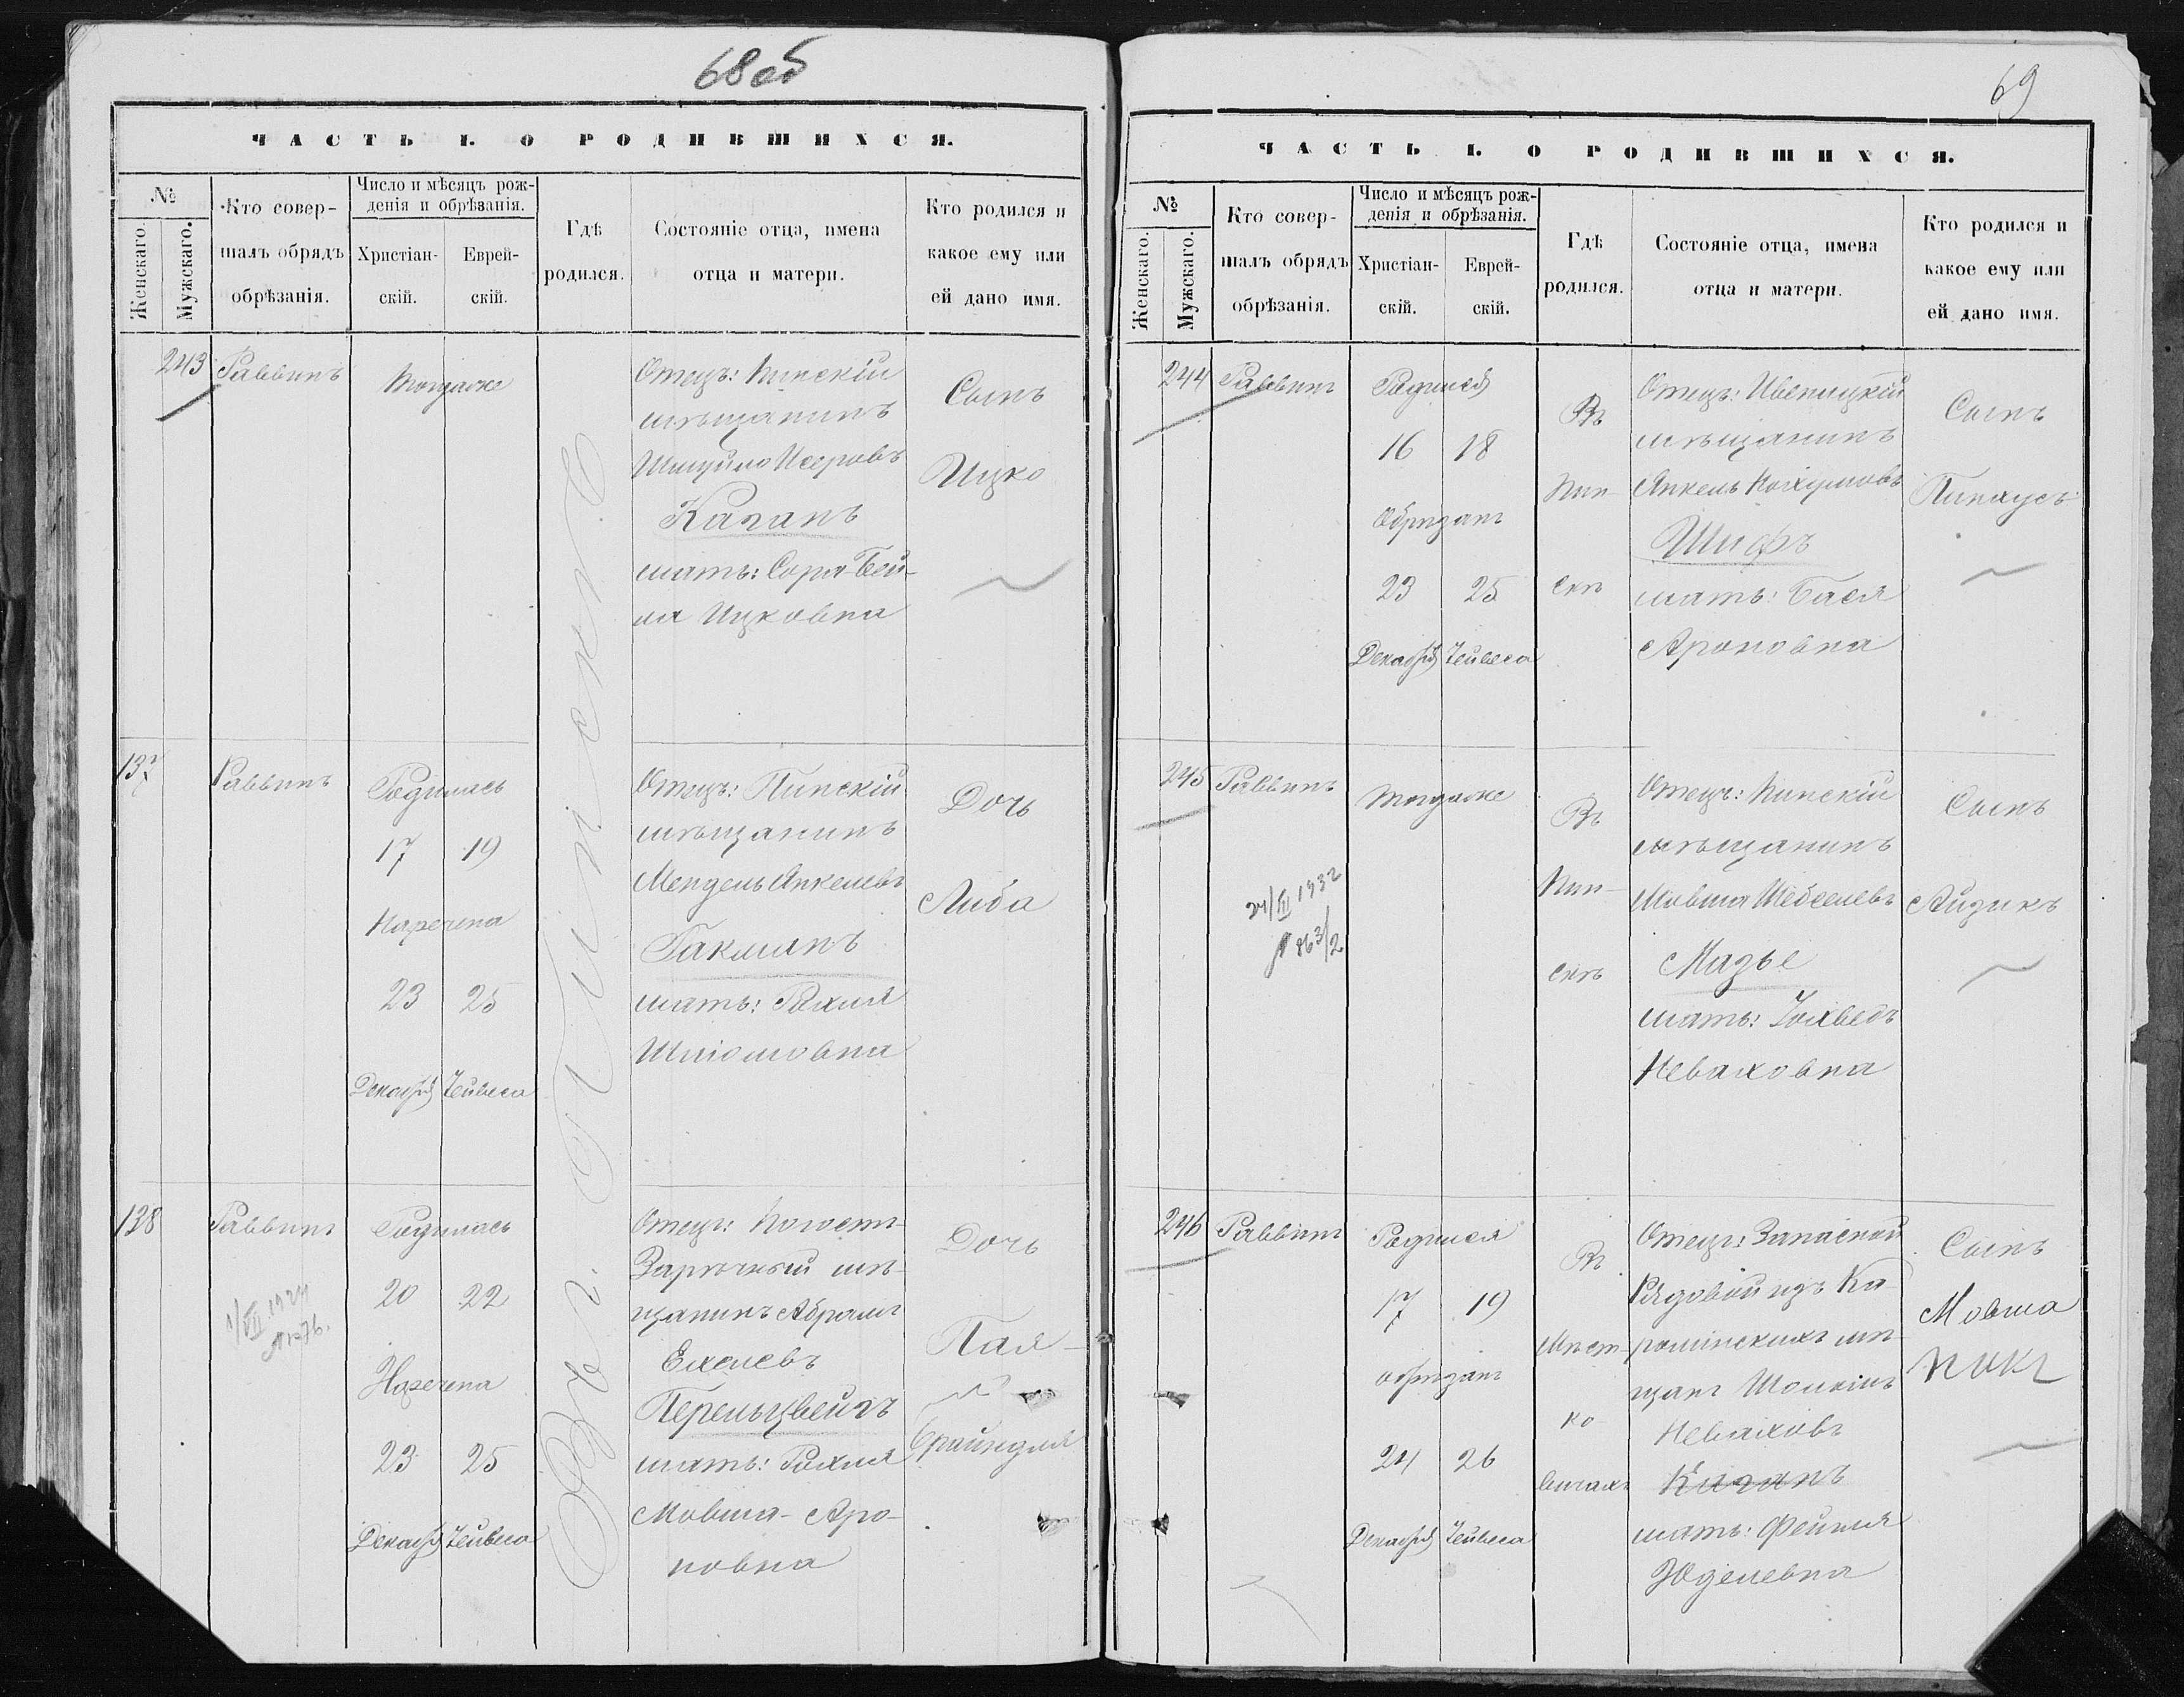 68 об
ЧАСТЬ I. О РОДИВШИХСЯ.
№
Женскаго.
Мужскаго.
Кто совер-
шалъ обрядъ
обрѣзанія.
Число и мѣсяцъ рож-
денія и обрѣзанія.
Христіан-
скій.
Еврей-
скій.
Гдѣ
родился.
Состояніе отца, имена
отца и матери.
Кто родился и
какое ему или
ей дано имя.
243
Раввинъ
Тогдаже
Отецъ: Пинскій
мѣщанинъ
Шмуйло Исеровъ
Каганъ
мать: Сора-Бей-
ла Ицковна
Сынъ
Ицко
137
Раввинъ
Родилась
17 19
Наречена
23 25
Декабря Тейвеса
Отецъ: Пинскій
мѣщанинъ
Мендель Янкелевъ
Гакманъ
мать: Рохля
Шліомовна
Дочь
Либа
138
Раввинъ
1/VII 1927
№ 76.
Родилась
20 22
Наречена
23 25
Декабря Тейвеса
Отецъ: Погост-
Зарѣчный мѣ-
щанинъ Абрамъ
Ехелевъ
Перельцвейгъ
мать: Рохля
Мовша-Аро-
новна
Дочь
Пая-
Брайндля
Въ г. Пинскѣ
69
ЧАСТЬ I. О РОДИВШИХСЯ.
№
Женскаго.
Мужскаго.
Кто совер-
шалъ обрядъ
обрѣзанія.
Число и мѣсяцъ рож-
денія и обрѣзанія.
Христіан-
скій.
Еврей-
скій.
Гдѣ
родился.
Состояніе отца, имена
отца и матери.
Кто родился и
какое ему или
ей дано имя.
244
Раввинъ
Родился
16 18
Обрѣзанъ
23 25
Декабря Тейвеса
Въ
Пин-
скѣ
Отецъ: Ивеницкій
мѣщанинъ
Янкель Нохумовъ
Шифъ
мать: Бася
Ароновна
Сынъ
Пинхусъ
245
Раввинъ
24/III 1932
№ 863/2
Тогдаже
Въ
Пин-
скѣ
Отецъ: Пинскій
мѣщанинъ
Мовша Шебселевъ
Мазье
мать: Іохведъ
Неваховна
Сынъ
Айзикъ
246
Раввинъ
Родился
17 19
обрѣзанъ
24 26
Декабря Тейвеса
Въ
Мѣст-
ко
Отецъ: Запасной
Рядовой изъ Ка-
ролинскихъ мѣ-
щанъ
Неваховъ
Каганъ
мать: Фейгля
Юделевна
Сынъ
Мовша
Пикъ